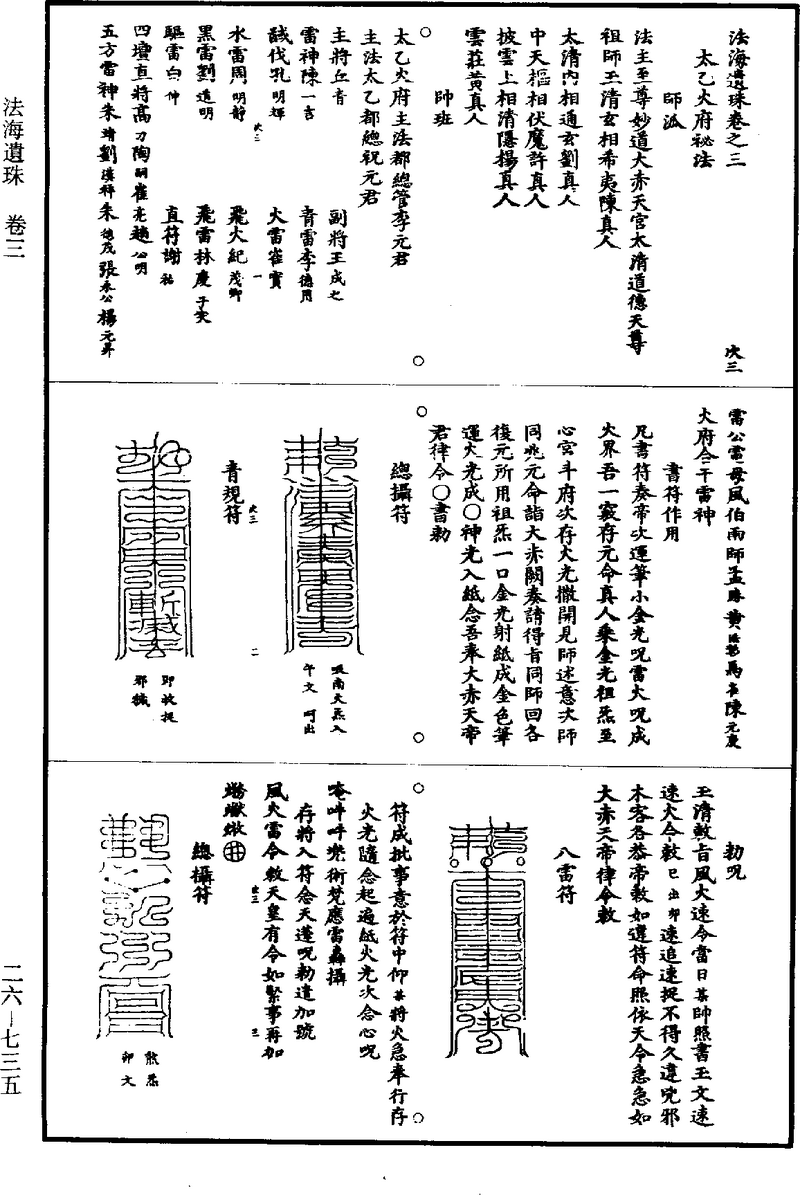 法海遺珠卷之三 次三
太乙火府祕法
師派
法主至尊妙道大赤天宮太清道德天尊
祖師玉清玄相希夷陳真人
太清內相通玄劉真人
中天樞相伏魔許真人
披雲上相清隱楊真人
雲莊黃真人
帥班
太乙火府主法都總管李元君
主法太乙都總祝元君
主將丘青 副將王成之
雷神陳一言 青雷李德用
誠伐孔明輝 火雷崔實
水雷周明靜 飛火紀茂卿
黑雷劉道明 飛雷林慶子實
驅雷白仲 直符謝祐
四壇直將高刀陶崔亮趙公明
五方雷神朱靖劉漢祥朱德茂張永公楊元昇
雷公電母風伯雨師孟黃馬陳元慶
火府合干雷神
書符作用
凡書符奏帝次運筆小金光呪雷火呪成
火界吾一竅存元命真人乘金光祖炁至
心宮斗府次存火光撒開見師述意次師
同兆元命詣大赤闕奏請得旨同師回各
復元所用祖炁一口金光射紙成金色筆
運火光成〇神光入紙念吾奉大赤天帝
君律令〇書勅
總攝符
吸南天炁入
午文 呵出
青規符
即收捉
邪穢
勅呪
玉清敕旨風火速令當日某帥照書玉文速
速火令敕 速追速捉不得久違兇邪
木客各恭帝敕如違符命照依天令急急如
大赤天帝律令敕
八雷符
符成批事意於符中仰某將火急奉行存
火光隨念起遍紙火光次念心呪
唵吽吽術梵應雷轟攝
存將入符念天蓬呪勅遣加號
風火雷令敕天皇有令如緊事再加
總攝符
煞炁
卯文
法海遺珠 卷三
二六—七三五